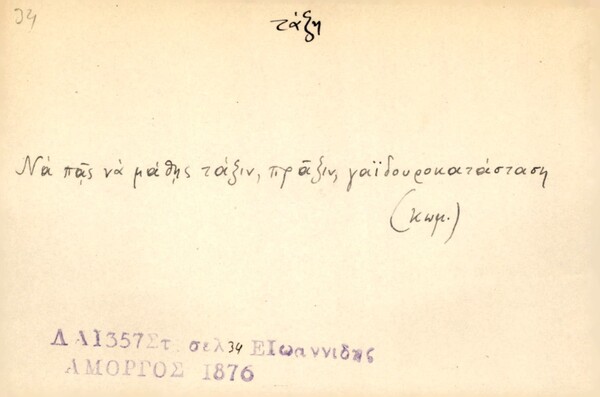 34
τάξη
Νὰ πᾷς νὰ μάθῃς τάξιν, πρᾶξιν, γαϊδουροκατάσταση
(κωμ.)
ΔΑΙ357Στ. σελ 34 ΕΙωαννιδης
ΑΜΟΡΓΟΣ 1876